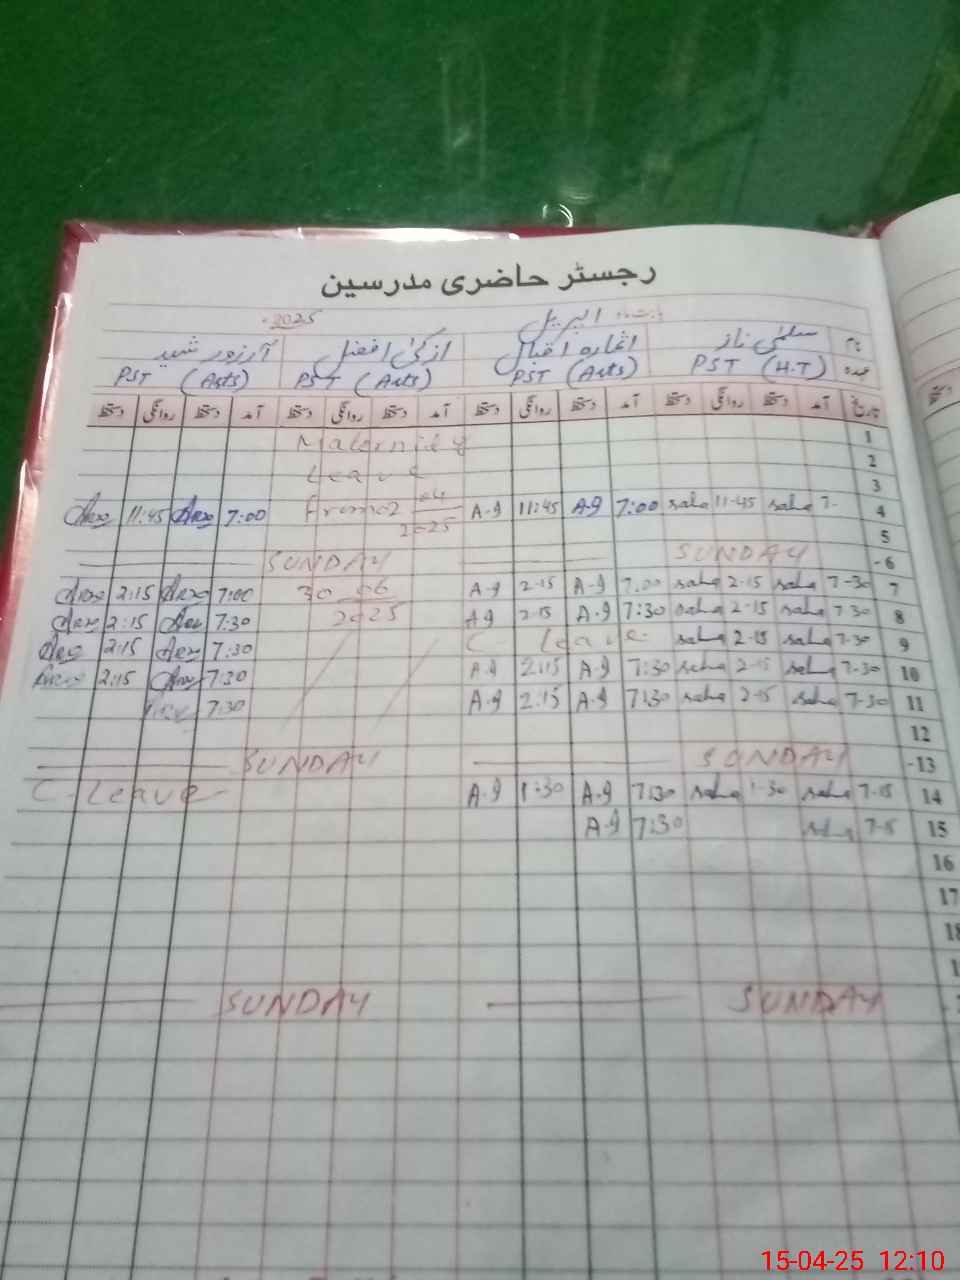 رجسٹر حاضری مدرسین
بابت ماہ اپریل 2025
نام سلمیٰ ناز انمارہ اقبال ازکیٰ افضل آرزو رشید
عہدہ PST (H.T) PST (Arts) PST (Arts) PST (Arts)
تاریخ آمد دستخط روانگی دستخط آمد دستخط روانگی دستخط آمد دستخط روانگی دستخط آمد دستخط روانگی دستخط
1 Maternity
2 Leave
3
4 7- saha 11-45 saha 7:00 A-I 11:45 A-I From 02 04 2025 7:00 Arzo 11:45 Arzo
5
6 SUNDAY SUNDAY
7 7-30 saha 2-15 saha 7.00 A-I 2-15 A-I 30 06 7:00 Arzo 2:15 Arzo
8 7-30 saha 2-15 saha 7:30 A-I 2-15 A-I 2025 7:30 Arzo 2:15 Arzo
9 7-30 saha 2-15 saha C- Leave 7:30 Arzo 2:15 Arzo
10 7-30 saha 2-15 saha 7:30 A-I 2:15 A-I 7:30 Arzo 2:15 Arzo
11 7-30 saha 2-15 saha 7:30 A-I 2:15 A-I 7:30
12
13 SUNDAY SUNDAY
14 7-15 saha 1-30 saha 7:30 A-I 1:30 A-I C-Leave
15 7-15 saha 7:30 A-I
16
17
18
SUNDAY SUNDAY
15-04-25 12:10